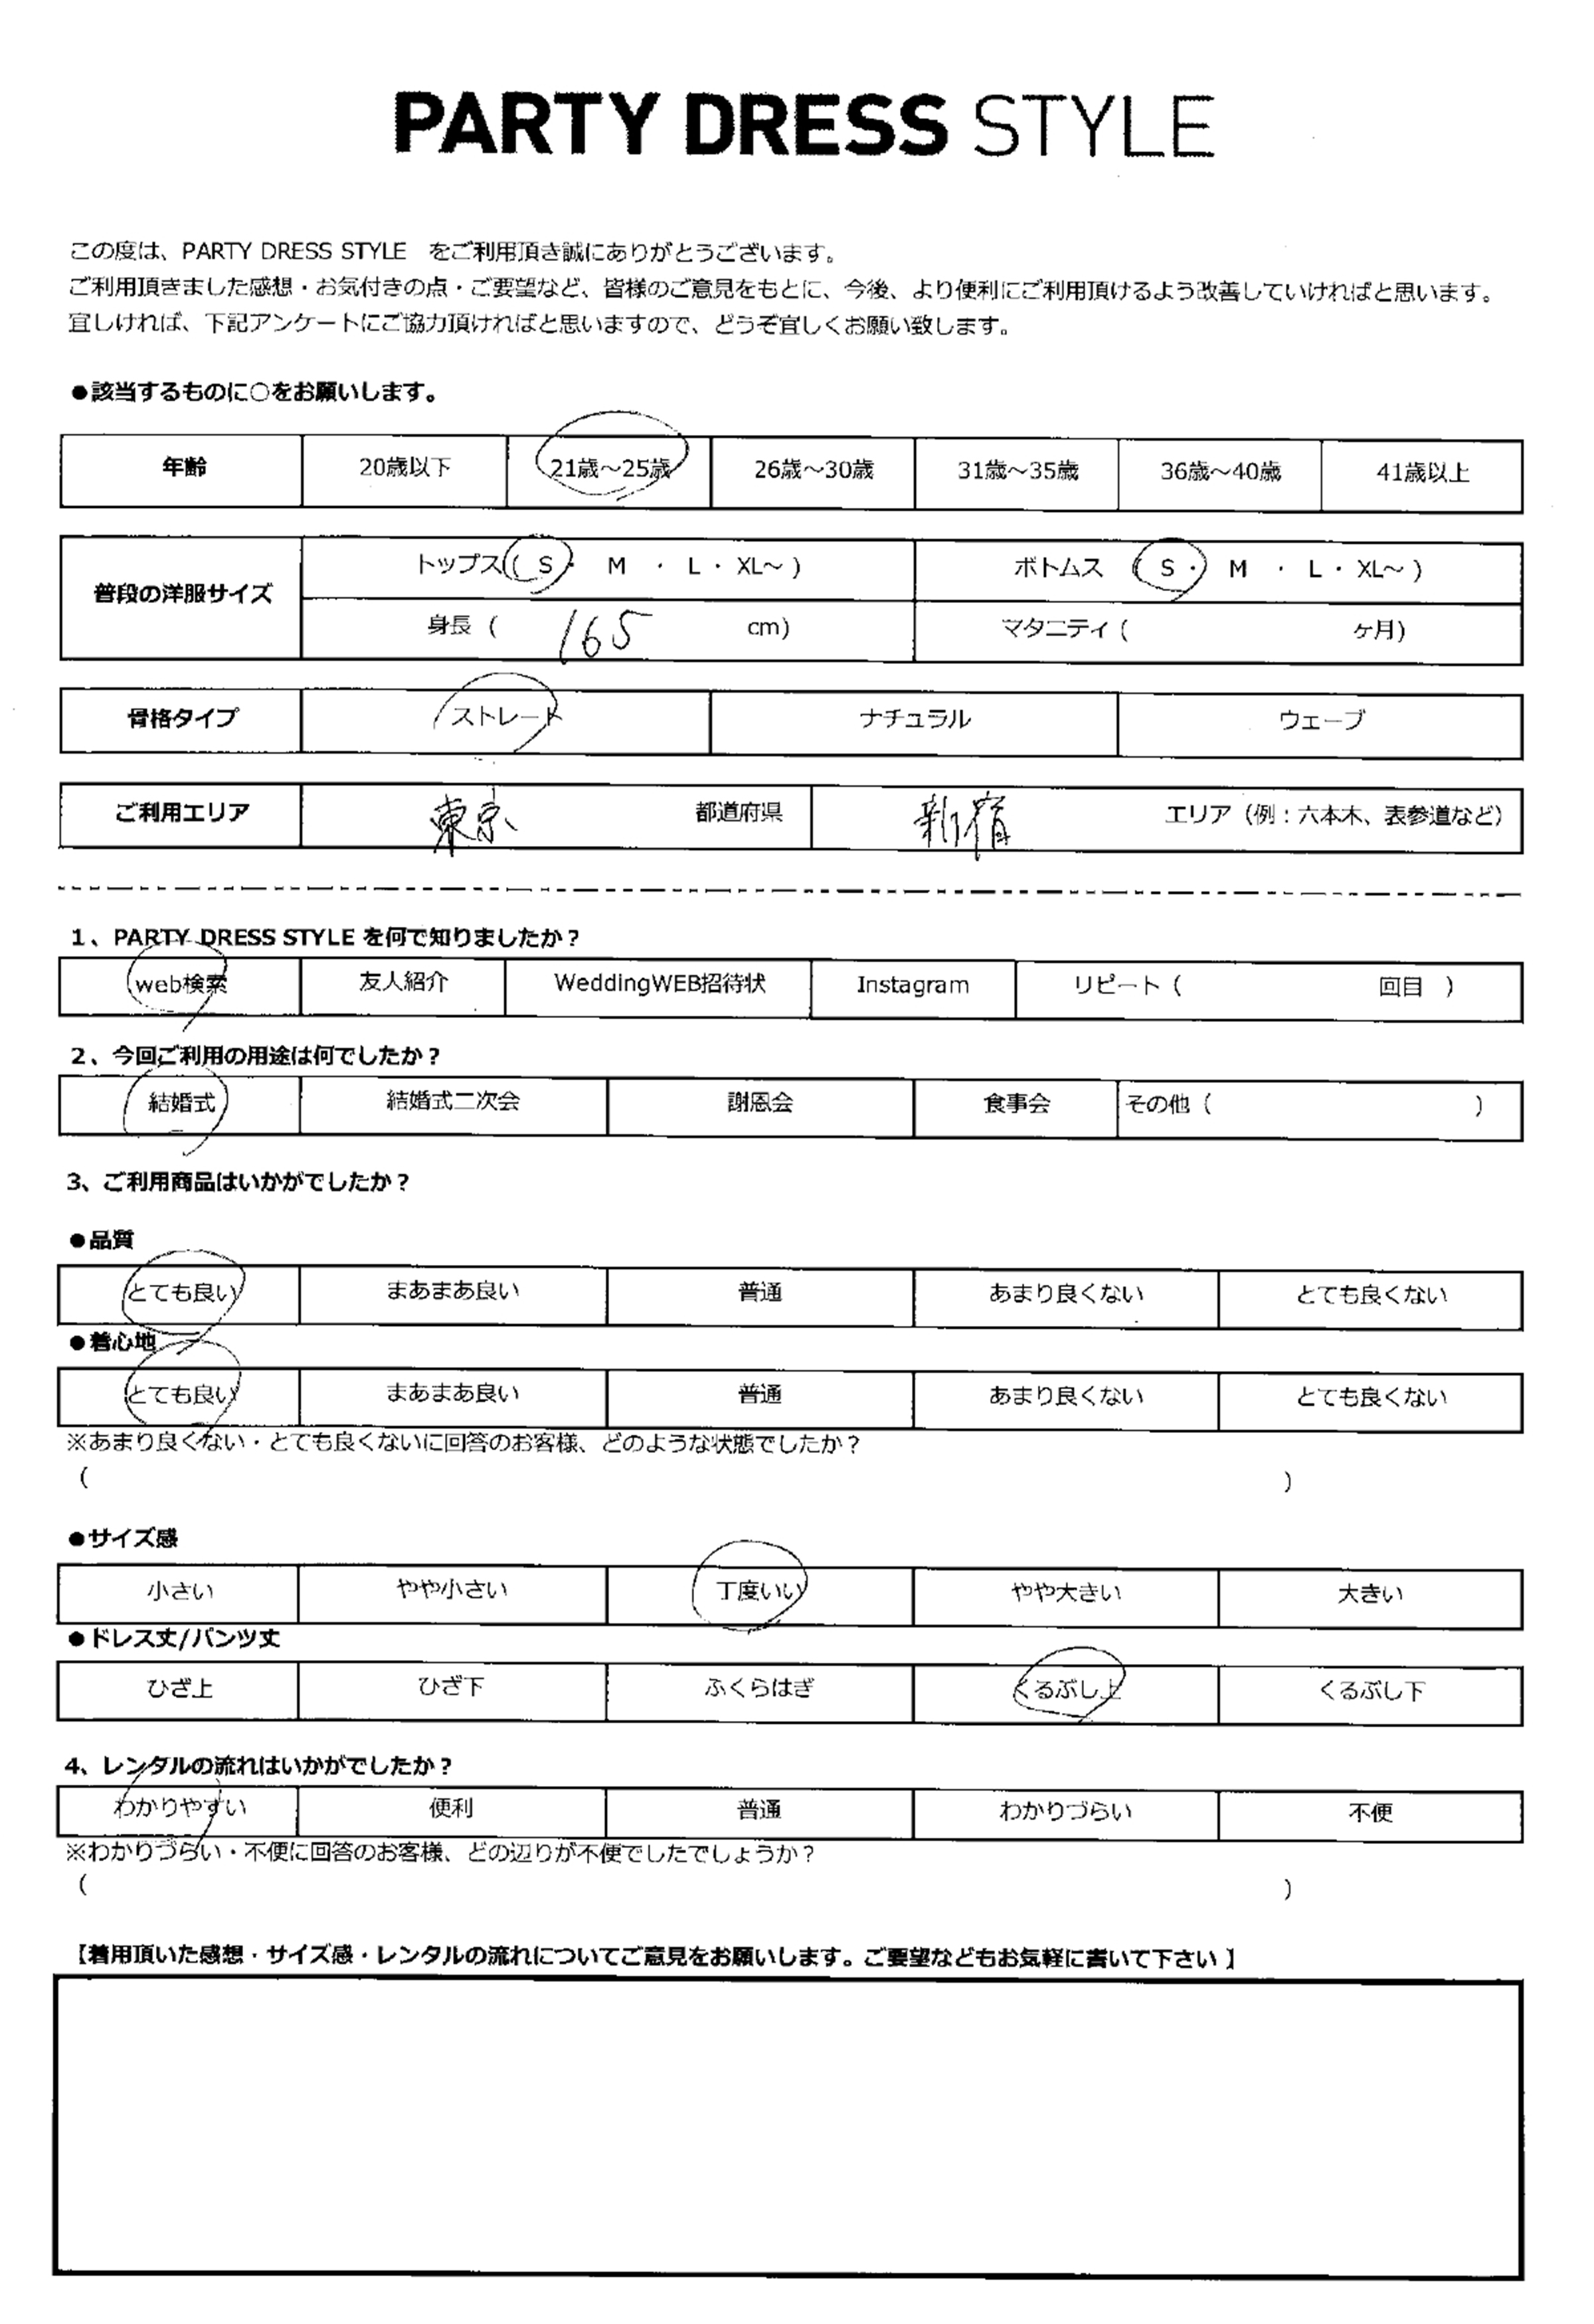 PARTY DRESS STYLE
この度は、PARTY DRESS STYLE　をご利用頂き誠にありがとうございます。
ご利用頂きました感想・お気付きの点・ご要望など、皆様のご意見をもとに、今後、より便利にご利用頂けるよう改善していければと思います。
宜しければ、下記アンケートにご協力頂ければと思いますので、どうぞ宜しくお願い致します。
●該当するものに○をお願いします。
年齢 20歳以下 21歳～25歳 26歳～30歳 31歳～35歳 36歳～40歳 41歳以上
普段の洋服サイズ
トップス（ S ・ M ・ L ・ XL～ ） ボトムス （ S ・ M ・ L ・ XL～ ）
身長（ 165 cm） マタニティ（ ヶ月）
骨格タイプ ストレート ナチュラル ウェーブ
ご利用エリア 東京 都道府県 新宿 エリア（例：六本木、表参道など）
1、PARTY DRESS STYLE を何で知りましたか？
web検索 友人紹介 WeddingWEB招待状 Instagram リピート（ 回目 ）
2、今回ご利用の用途は何でしたか？
結婚式 結婚式二次会 謝恩会 食事会 その他（ ）
3、ご利用商品はいかがでしたか？
●品質
とても良い まあまあ良い 普通 あまり良くない とても良くない
●着心地
とても良い まあまあ良い 普通 あまり良くない とても良くない
※あまり良くない・とても良くないに回答のお客様、どのような状態でしたか？
（ ）
●サイズ感
小さい やや小さい 丁度いい やや大きい 大きい
●ドレス丈/パンツ丈
ひざ上 ひざ下 ふくらはぎ くるぶし上 くるぶし下
4、レンタルの流れはいかがでしたか？
わかりやすい 便利 普通 わかりづらい 不便
※わかりづらい・不便に回答のお客様、どの辺りが不便でしたでしょうか？
（ ）
【着用頂いた感想・サイズ感・レンタルの流れについてご意見をお願いします。ご要望などもお気軽に書いて下さい 】